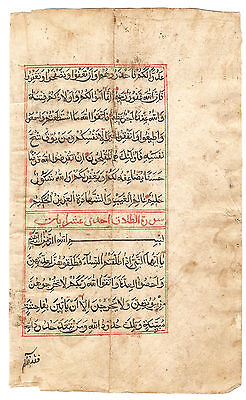 عَدُوًّا لَكُمْ فَاحْذَرُوهُمْ وَاِنْ تَعْفُوا وَتَصْفَحُوا وَتَغْفِرُوا
فَاِنَّ اللّٰهَ غَفُورٌ رَحِيمٌ اِنَّمَا اَمْوَالُكُمْ وَاَوْلَادُكُمْ فِتْنَةٌ
وَاللّٰهُ عِنْدَهُ اَجْرٌ عَظِيمٌ فَاتَّقُوا اللّٰهَ مَا اسْتَطَعْتُمْ وَاسْمَعُوا
وَاَطِيعُوا وَاَنْفِقُوا خَيْرًا لِاَنْفُسِكُمْ وَمَنْ يُوقَ شُحَّ
نَفْسِهِ فَاُولٰئِكَ هُمُ الْمُفْلِحُونَ اِنْ تُقْرِضُوا اللّٰهَ قَرْضًا
حَسَنًا يُضَاعِفْهُ لَكُمْ وَيَغْفِرْ لَكُمْ وَاللّٰهُ شَكُورٌ
حَلِيمٌ عَالِمُ الْغَيْبِ وَالشَّهَادَةِ الْعَزِيزُ الْحَكِيمُ
سورة الطلاق احدى عشر ايات
بِسْمِ اللّٰهِ الرَّحْمٰنِ الرَّحِيمِ
يَا اَيُّهَا النَّبِيُّ اِذَا طَلَّقْتُمُ النِّسَاءَ فَطَلِّقُوهُنَّ لِعِدَّتِهِنَّ
وَاَحْصُوا الْعِدَّةَ وَاتَّقُوا اللّٰهَ رَبَّكُمْ لَا تُخْرِجُوهُنَّ مِنْ
بُيُوتِهِنَّ وَلَا يَخْرُجْنَ اِلَّا اَنْ يَأْتِينَ بِفَاحِشَةٍ
مُبَيِّنَةٍ وَتِلْكَ حُدُودُ اللّٰهِ وَمَنْ يَتَعَدَّ حُدُودَ اللّٰهِ
فقد ظلم